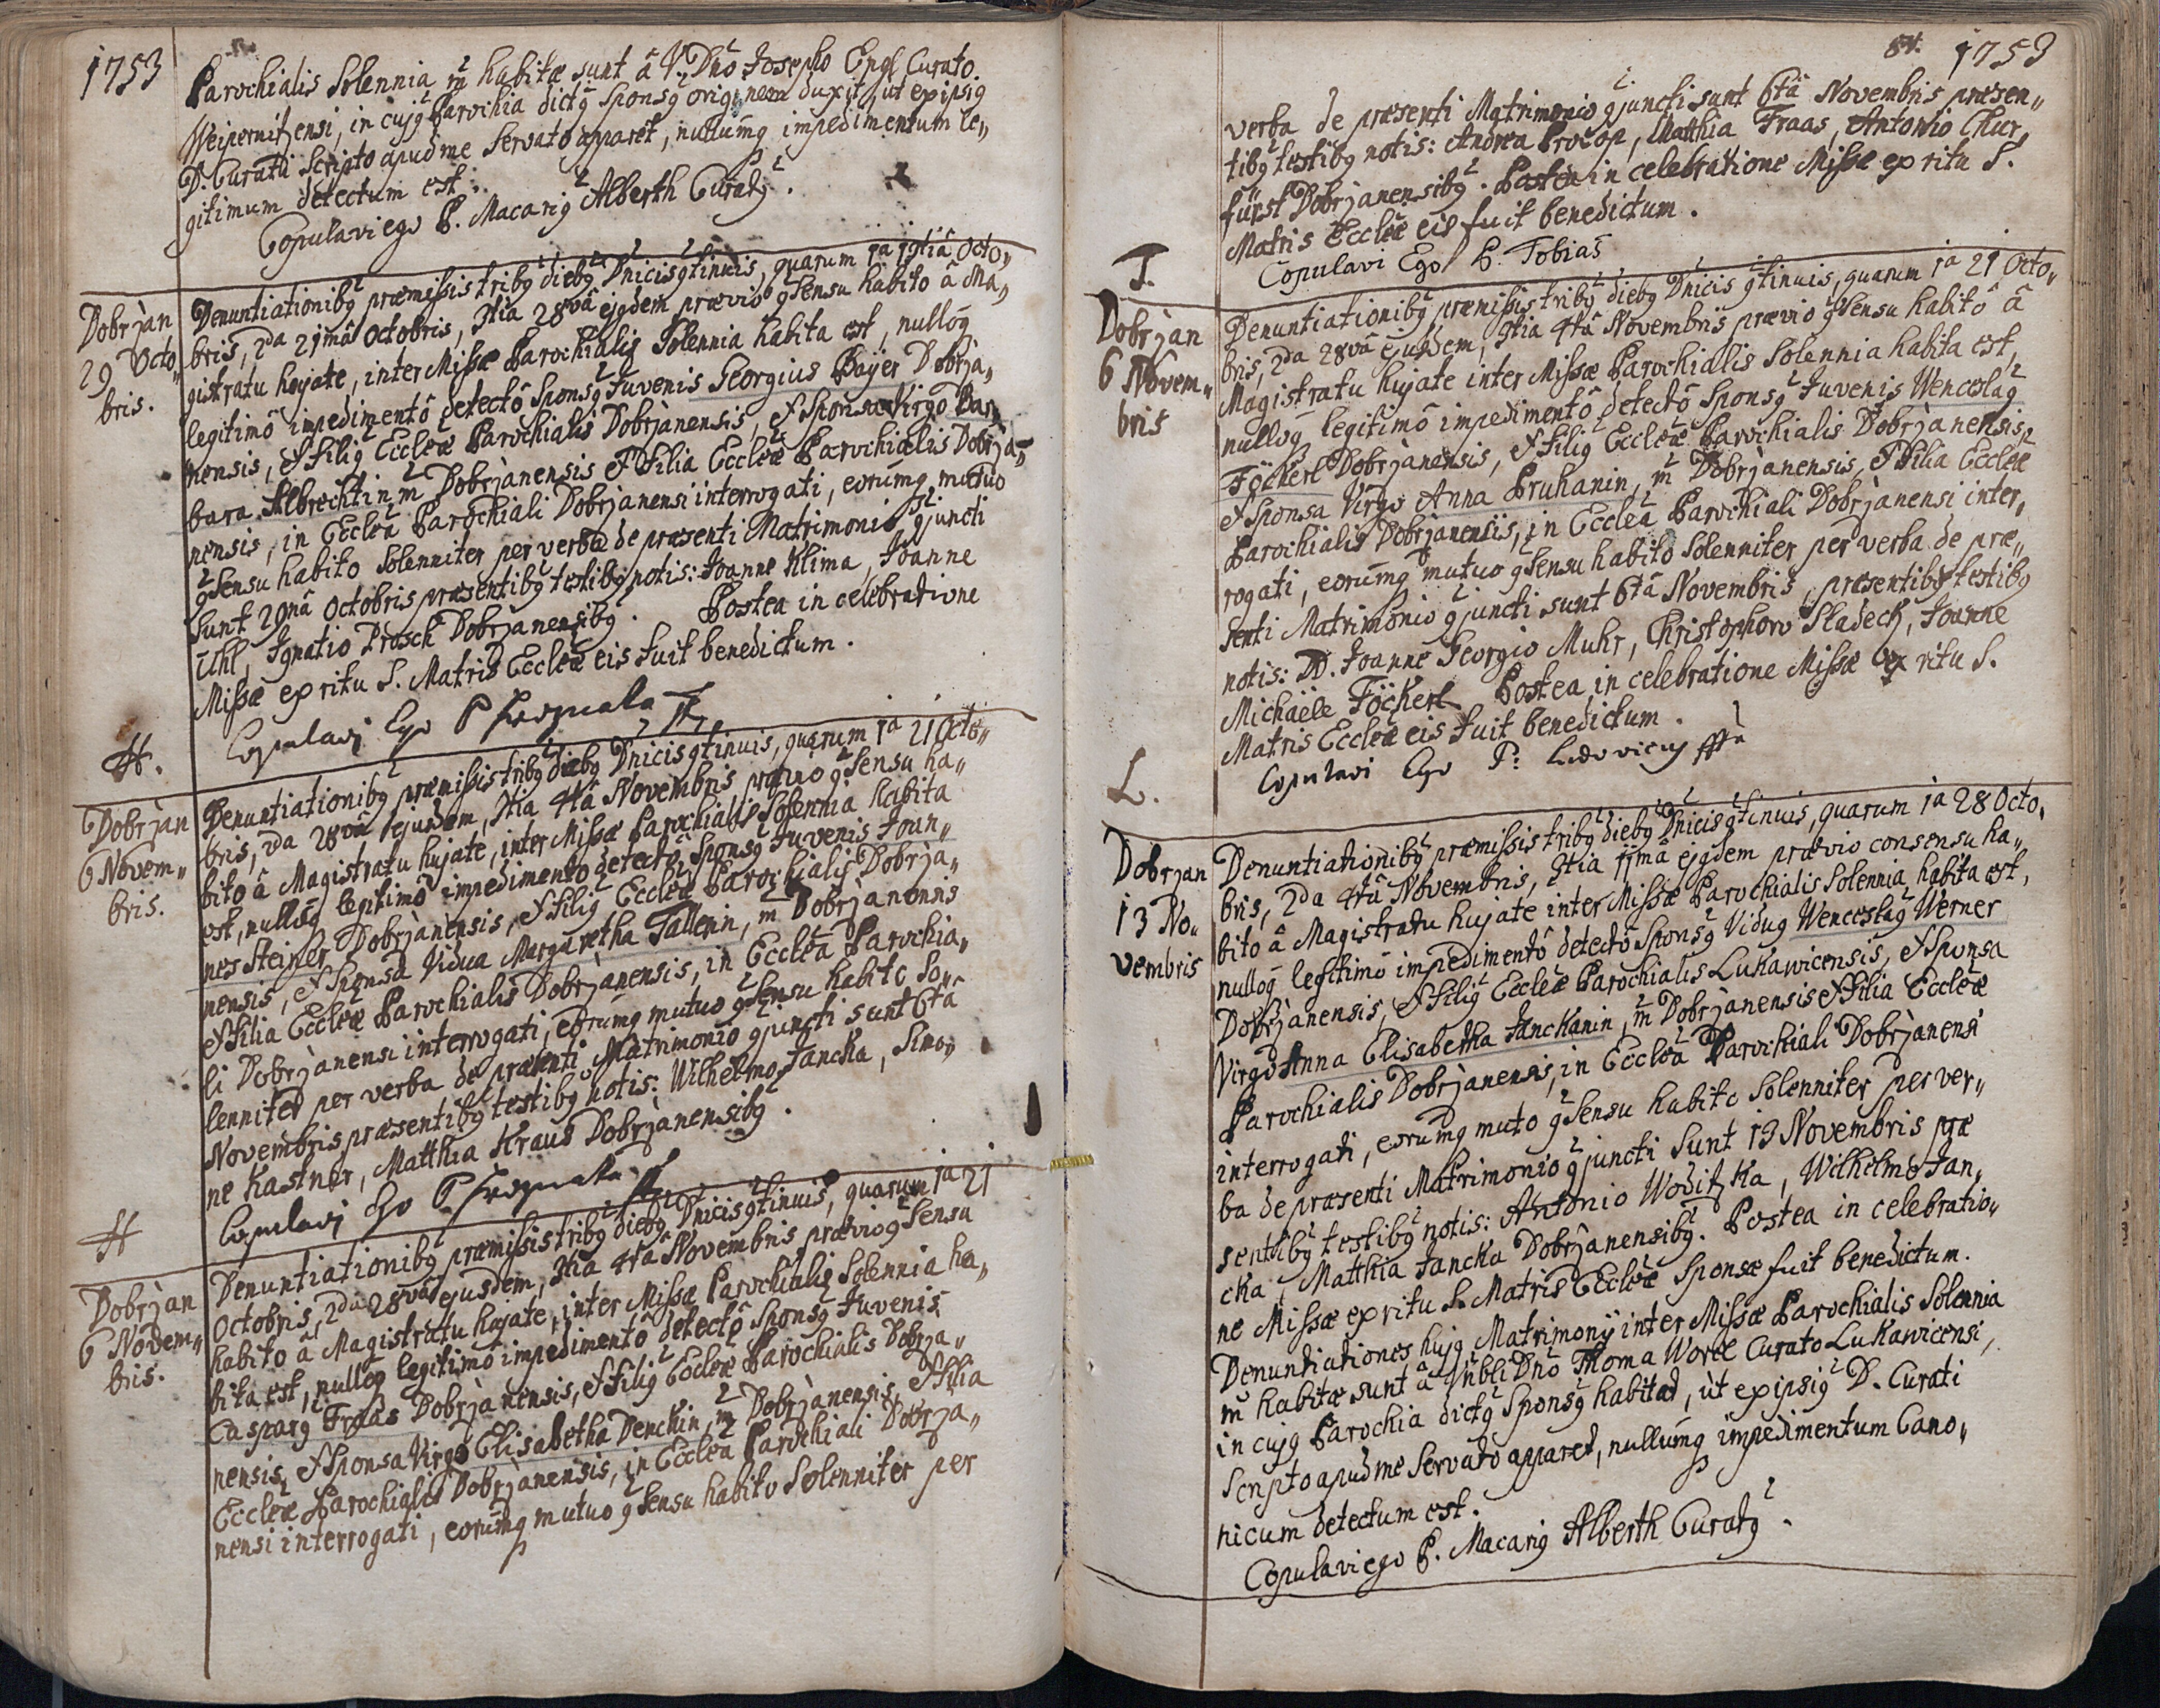 1753
Parochialis Solennia m̃ habitæ sunt â V. Dño Josepho Engl Curato
Weipernitzensi, in cujg Parochia dictg Sponsg originem duxit, ut ex ipsig
D. Curati Scripto apud me Servato apparet, nullumq impedimentum le„
gitimum detectum est.
Copulavi ego P. Macarig Alberth Curatg.
Dobrjan
29 Octo„
bris.
Denuntiationibg præmissis tribg diebg Dnicis gtinuis, quarum 1a 14tiâ Octo„
bris, 2da 21mâ Octobris, 3tia 28vâ ejgdem prævio gsensu habito â Ma„
gistratu hujate, inter Missæ Parochialis Solennia habita est, nulloq
legitimô impedimentô detectô Sponsg Juvenis Georgius Bayer Dobrja„
nensis, et Filig Eccleæ Parochialis Dobrjanensis, et Sponsa Virgo Bar„
bara Albrechtin, m̃ Dobrjanensis et Filia Eccleæ Parochialis Dobrja„
nensis, in Ecclea Parochiali Dobrjanensi interrogati, eorumq mutuo
gsensu habito Solenniter per verba de præsenti Matrimonio gjuncti
Sunt 29nâ Octobris præsentibg testibg notis: Joanne Klima, Joanne
Uhl, Ignatio Prosch Dobrjanensibg. Postea in celebratione
Missæ ex ritu S. Matris Eccleæ eis fuit benedictum.
Copulavi Ego P
H.
Dobrjan
6 Novem„
bris.
Denuntiationibg præmissis tribg diebg Dnicis gtinuis, quarum 1a 21 Octo„
bris, 2da 28vâ ejusdem, 3tia 4tâ Novembris prævio gsensu ha„
bito â Magistratu hujate, inter Missæ Parochialis Solennia habita
est, nulloq legitimô impedimento detectô Sponsg Juvenis Joan„
nes Steiner Dobrjanensis, et Filig Eccleæ Parochialis Dobrja„
nensis, et Sponsa Vidua Margaretha Tallerin, m̃ Dobrjanensis
et Filia Eccleæ Parochialis Dobrjanensis, in Ecclea Parochia„
li Dobrjanensi interrogati, eorumq mutuo gsensu habito So„
lenniter per verba de præsenti Matrimonio gjuncti sunt 6tâ
Novembris præsentibg testibg notis: Wilhelmo Jancka, Simo„
ne Kastner, Matthia Kraus Dobrjanensibg.
Copulavi Ego P
H
Dobrjan
6 Novem„
bris.
Denuntiationibg præmissis tribg diebg Dnicis gtinuis, quarum 1a 21
Octobris, 2da 28vâ ejusdem, 3tia 4tâ Novembris prævio gsensu
habito â Magistratu hujate, inter Missæ Parochialis Solennia ha„
bita est, nulloq legitimô impedimentô detectô Sponsg Juvenis
Casparg Fraas Dobrjanensis, et Filig Eccleæ Parochialis Dobrja„
nensis, et Sponsa Virgo Elisabetha Denckin, m̃ Dobrjanensis, et Filia
Eccleæ Parochialis Dobrjanensis, in Ecclea Parochiali Dobrja„
nensi interrogati, eorumq mutuo gsensu habito Solenniter per
84. 1753
verba de præsenti Matrimonio gjuncti sunt 6tâ Novembris præsen„
tibg testibg notis: Andrea Procop, Matthia Fraas, Antonio Chur„
fürst Dobrjanensibg. Postea in celebratione Missæ ex ritu S.
Matris Eccleæ eis fuit benedictum.
Copulavi Ego P. Tobias
T.
Dobrjan
6 Novem„
bris
Denuntiationibg præmissis tribg diebg Dnicis gtinuis, quarum 1a 21 Octo„
bris, 2da 28vâ ejusdem, 3tia 4tâ Novembris prævio gsensu habitô â
Magistratu hujate inter Missæ Parochialis Solennia habita est,
nulloq legitimô impedimentô detectô Sponsg Juvenis Wenceslag
Föckerl Dobrjanensis, et Filig Eccleæ Parochialis Dobrjanensis,
et Sponsa Virgo Anna Pruhanin, m̃ Dobrjanensis, et Filia Eccleæ
Parochialis Dobrjanensis, in Ecclea Parochiali Dobrjanensi inter„
rogati, eorumq mutuo gsensu habito Solenniter per verba de præ„
senti Matrimonio gjuncti sunt 6tâ Novembris, præsentibg testibg
notis: D. Joanne Georgio Muhr, Christophoro Sladeck, Joanne
Michaële Föckerl. Postea in celebratione Missæ ex ritu S.
Matris Eccleæ eis fuit benedictum.
Copulavi Ego P: Ludovicus
L.
Dobrjan
13 No„
vembris
Denuntiationibg præmissis tribg diebg Dnicis gtinuis, quarum 1a 28 Octo„
bris, 2da 4tâ Novembris, 3tia 11mâ ejgdem prævio consensu ha„
bito â Magistratu hujate inter Missæ Parochialis Solennia habita est,
nulloq legitimô impedimentô detectô Sponsg Vidug Wenceslag Werner
Dobrjanensis, et Filig Eccleæ Parochialis Lukawicensis, et Sponsa
Virgo Anna Elisabetha Janckanin, m̃ Dobrjanensis et Filia Eccleæ
Parochialis Dobrjanensis, in Ecclea Parochiali Dobrjanensi
interrogati, eorumq muto gsensu habito Solenniter per ver„
ba de præsenti Matrimonio gjuncti Sunt 13 Novembris præ
sentibg testibg notis: Antonio Woditzka, Wilhelmo Jan„
cka, Matthia Jancka Dobrjanensibg. Postea in celebratio„
ne Missæ ex ritu S. Matris Eccleæ Sponsæ fuit benedictum.
Denuntiationes hujg Matrimonij inter Missæ Parochialis Solennia
m̃ habitæ sunt â Vnbli Dnô Thoma Worel Curato Lukawicensi,
in cujg Parochia dictg Sponsg habitad, ùt ex ipsig D. Curati
Scripto apud me Servato apparet, nullumq impedimentum Cano„
nicum detectum est.
Copulavi ego P. Macarig Alberth Curatg.